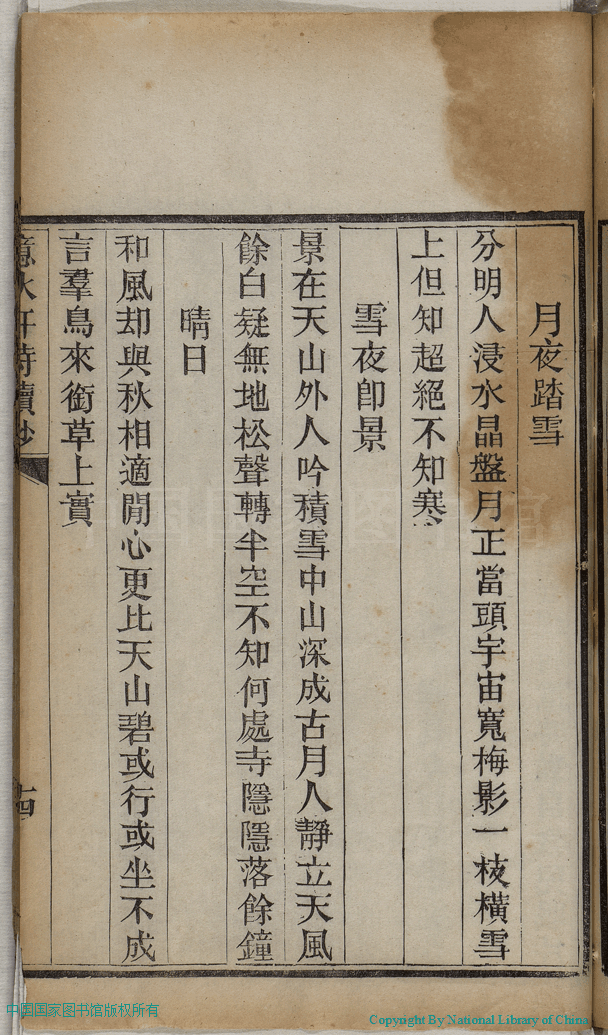 月夜踏雪
分明人浸水晶盤月正當頭宇宙寬梅影一枝橫雪
上但知超絕不知寒
雪夜卽景
景在天山外人吟積雪中山深成古月人靜立天風
餘白疑無地松聲轉半空不知何處寺隱隱落餘鐘
晴日
和風却與秋相適閒心更比天山碧或行或坐不成
言羣鳥來銜草上實
憶水軒詩讀抄
十四
中国国家图书馆版权所有
Copyright By National Library of China